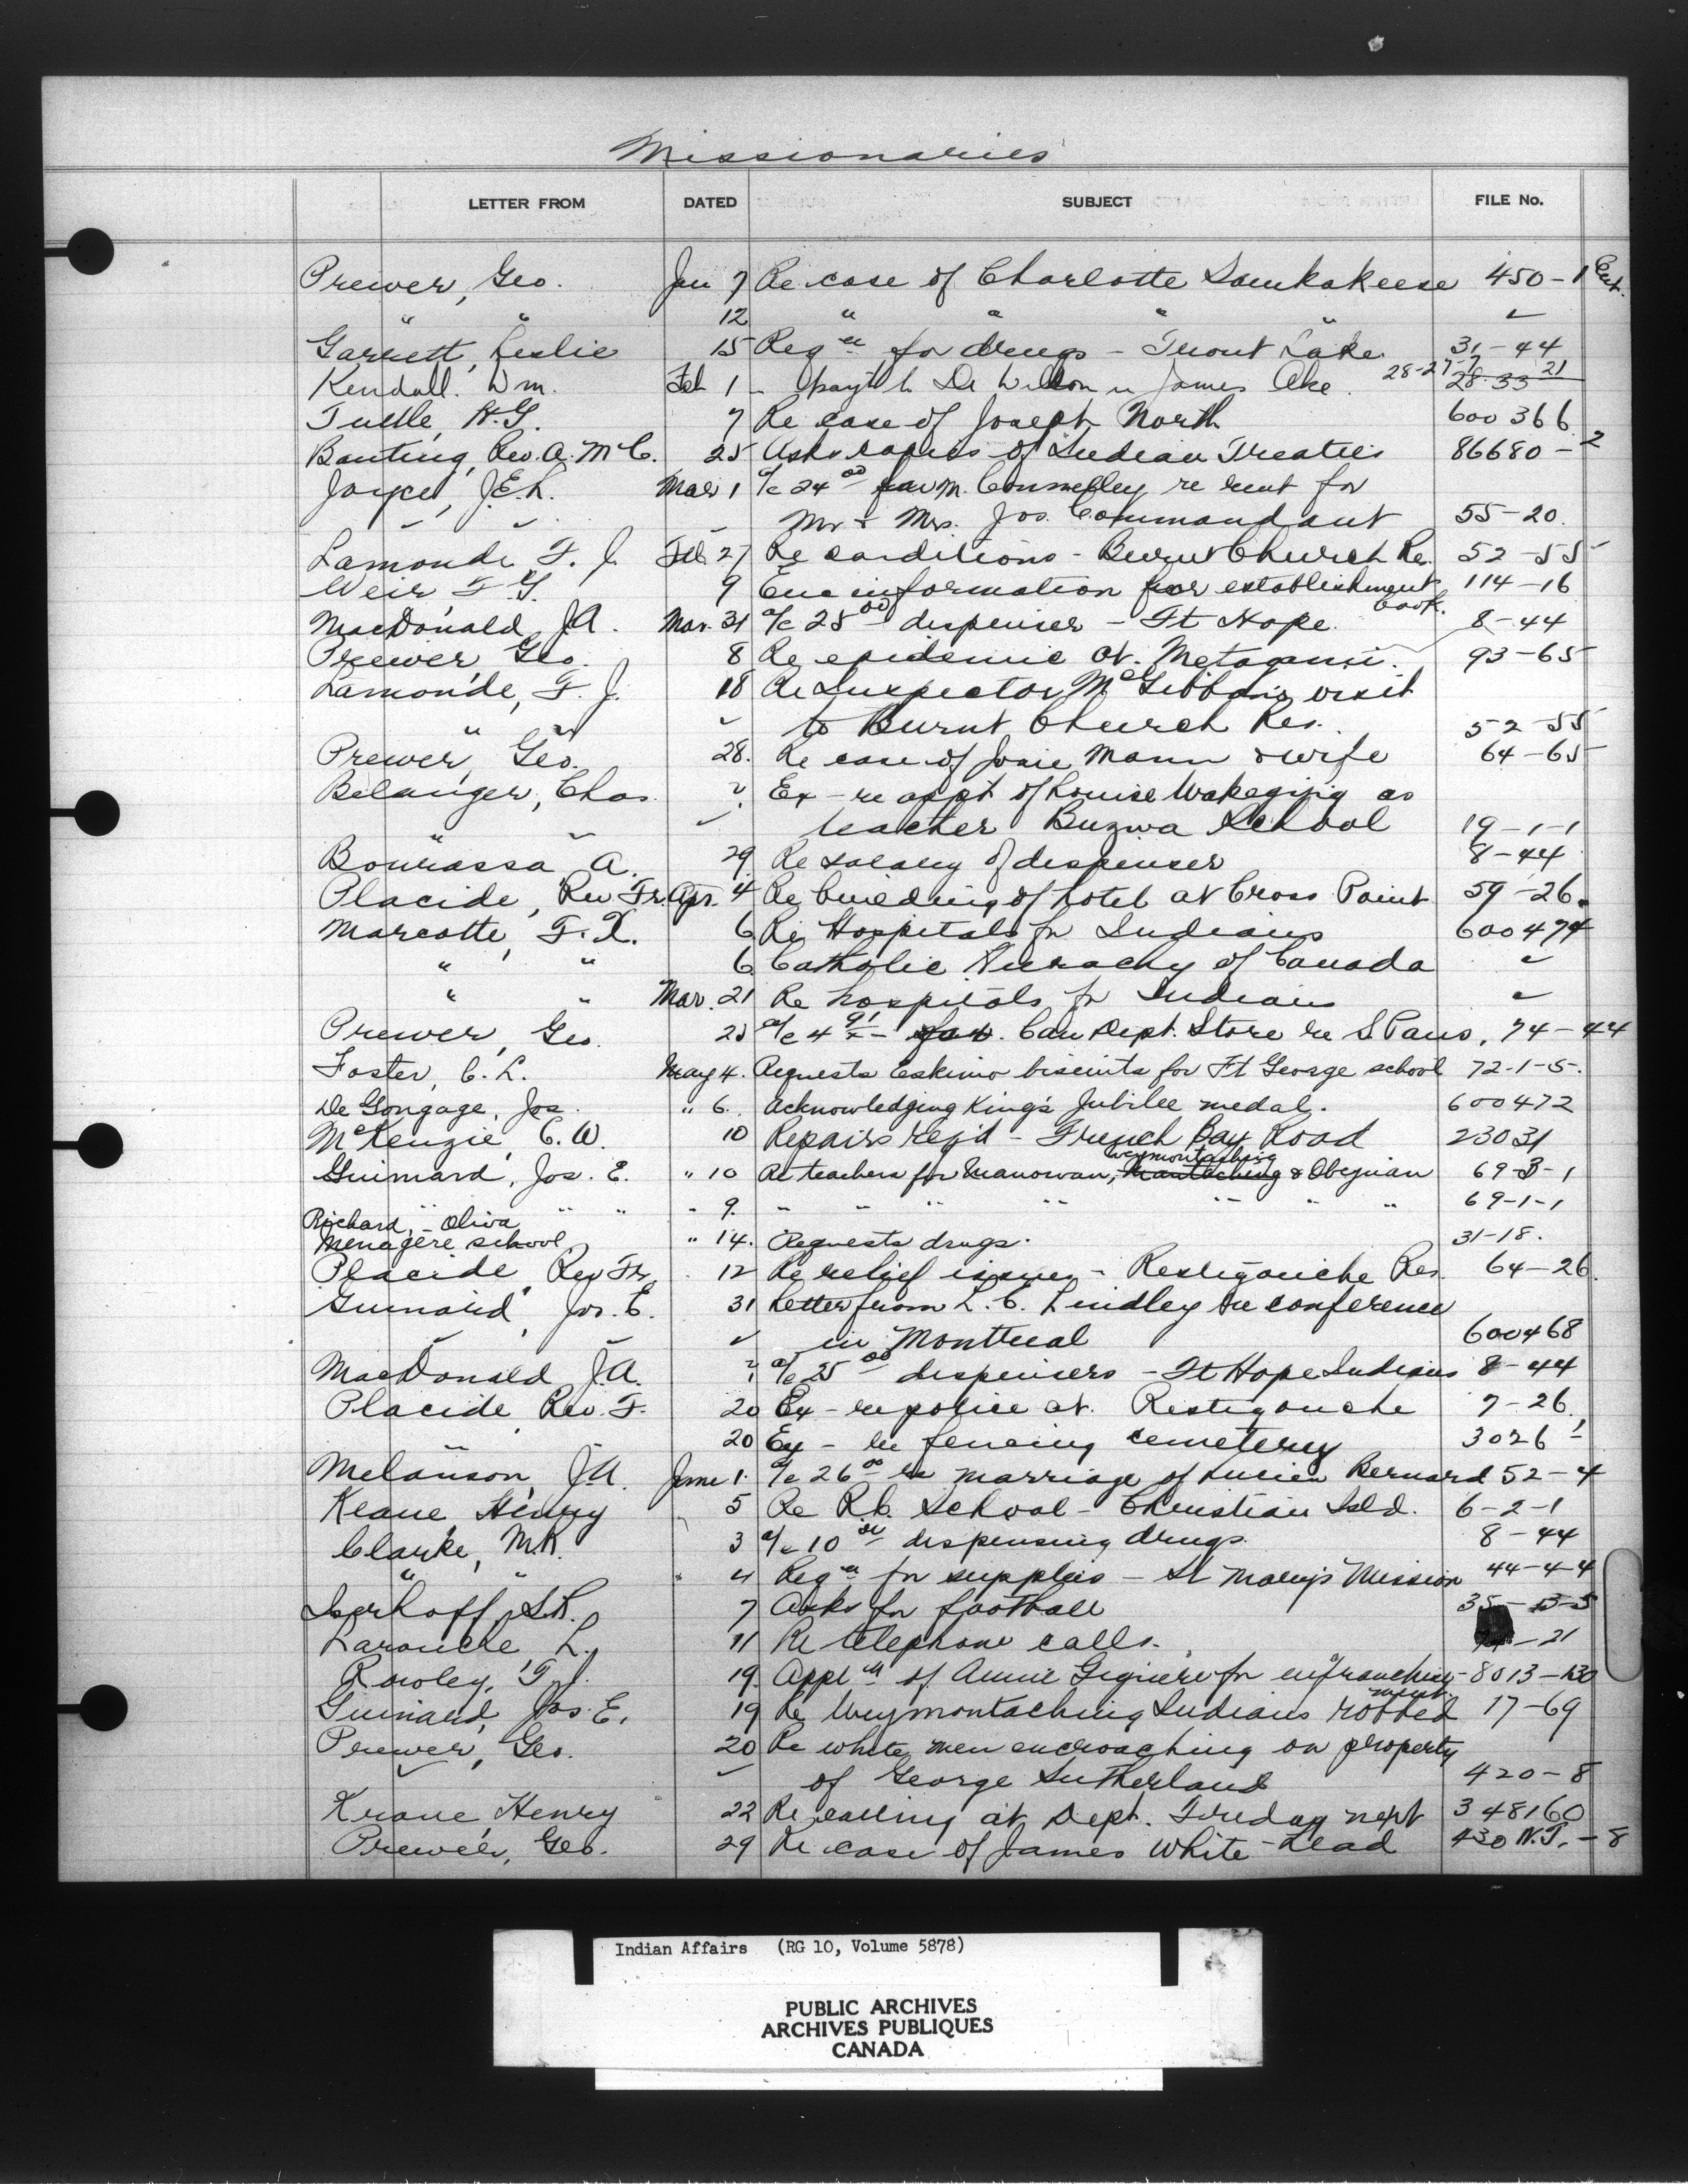 Missionaries
LETTER FROM DATED SUBJECT FILE No.
Prewer, Geo. Jan 7 Re case of Charlotte Samkakeese 450-1 Ent.
" " 12 " " " " "
Garrett, Leslie 15 Reqn for drugs - Trout Lake 31-44
Kendall. Wm. Feb 1 James Ake. 28-27-7 28-33-21
Tuelle, H.G. 7 Re case of Joseph North 600366
Banting, Rev. A. McC. 25 Asks copies of Indian Treaties 86680-2
Joyce, J.E.L. Mar 1 a/c 24 00 fav M. Connelley re rent for
" " " Mr & Mrs. Jos. Commandant 55-20.
Lamonde F. J. Feb. 27 Re conditions - Burnt Church Res. 52-55
Weir F. G. 9 Enc information for establishment book. 114-16
MacDonald J.A. Mar. 31 a/c 25 00 dispenser - Ft Hope. 8-44
Prewer, Geo. 8 Re epidemic at. Metagami. 93-65
Lamonde, F. J. 18 Re Inspector McGibbons visit
" " " to Burnt Church Res. 52-55
Prewer, Geo. 28. Re case of Josie Mann & wife 64-65
Belanger, Chas. ? Ex - re appt of Louise Wakegijig as
" " " teacher Buzwa School 19-1-1
Bourassa A. 29 Re salary of dispenser 8-44
Placide, Rev Fr. Apr. 4 Re building of hotel at Cross Point 59-26.
Marcotte, F. X. 6 Re Hospitals for Indians 600474
" " 6 Catholic Hierachy of Canada "
" " Mar. 21 Re hospitals for Indians "
Prewer, Geo. 25 a/c 4 91 fav. Can Dept. Store re S. Paus, 74-44
Foster, C. L. May 4. Requests Eskimo biscuits for Ft George school 72-1-5.
De Gongage, Jos. " 6. Acknowledging King's Jubilee medal. 600472
McKenzie, C. W. 10 Repairs reqd - French Bay Road 23031
Guimard, Jos. E. " 10 Re teachers for Manowan, Weymontaching & Obejuian 69-3-1
" " " 9. " " " " " " 69-1-1
Richard, - Oliva
Menagere school " 14. Requests drugs. 31-18.
Placide, Rev Fr. 12 Re relief issues - Restigouche Res. 64-26.
Guinard, Jos. E. 31 Letter from L. C. Lindley re conference
" " " in Montreal 600468
MacDonald J.A. ? a/c 25 00 dispensers - Ft Hope Indians 8-44
Placide, Rev. F. 20 Ex - re police at. Restigouche 7-26.
" 20 Ex - re fencing cemetery 3026-1
Melanson, J.A. June 1. a/c 26 00 re marriage of Lucien Bernard 52-4
Keane, Henry 5 Re R.C. School - Christian Isld. 6-2-1
Clarke, M.R. 3 a/c 10 dispensing drugs. 8-44
" " " 4 Reqn for supplies - St Mary's Mission 44-4-4
Iserhoff, S.R. 7 Asks for football 35-
Larouche L. 11 Re telephone calls. -21
Rowley, T. J. 19. Appln of Annie Gigniere for enfranchise-ment 8013-130
Guinard, Jos. E. 19 Re Weymontaching Indians robbed 17-69
Prewer, Geo. 20 Re white men encroaching on property
" " of George Sutherland 420-8
Keane, Henry 22 Re calling at Dept. Tuesday next 348160
Prewer, Geo. 29 Re case of James White-Head 430 N.T.-8
Indian Affairs (RG 10, Volume 5878)
PUBLIC ARCHIVES
ARCHIVES PUBLIQUES
CANADA